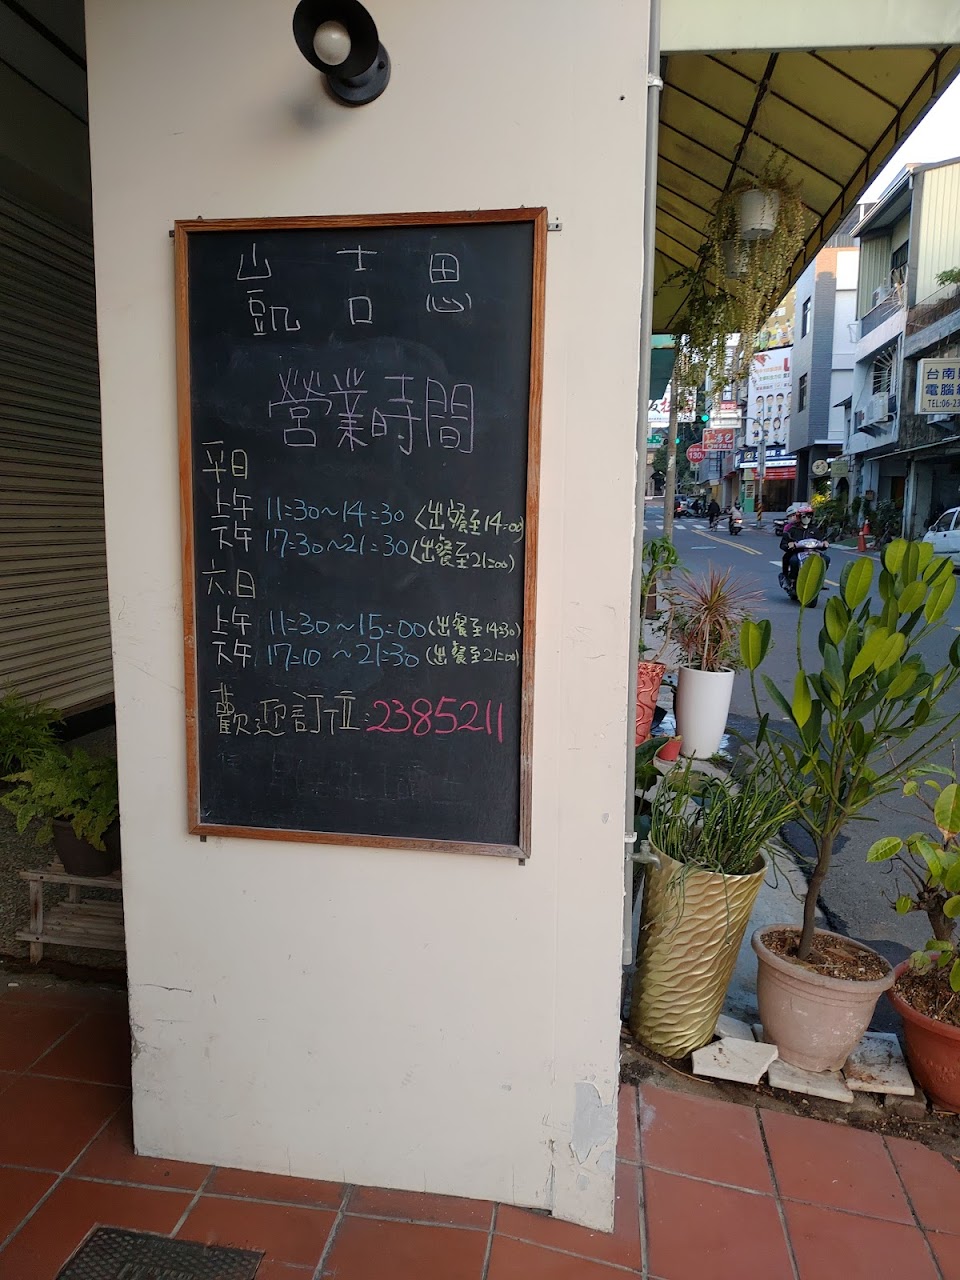 凱吉思
營業時間
平日
上午 11:30~14:30 (出餐至14:00)
下午 17:30~21:30 (出餐至21:00)
六.日
上午 11:30~15:00 (出餐至14:30)
下午 17:10~21:30 (出餐至21:00)
歡迎訂位:2385211
台南
電腦
TEL:06-23
湯包
130